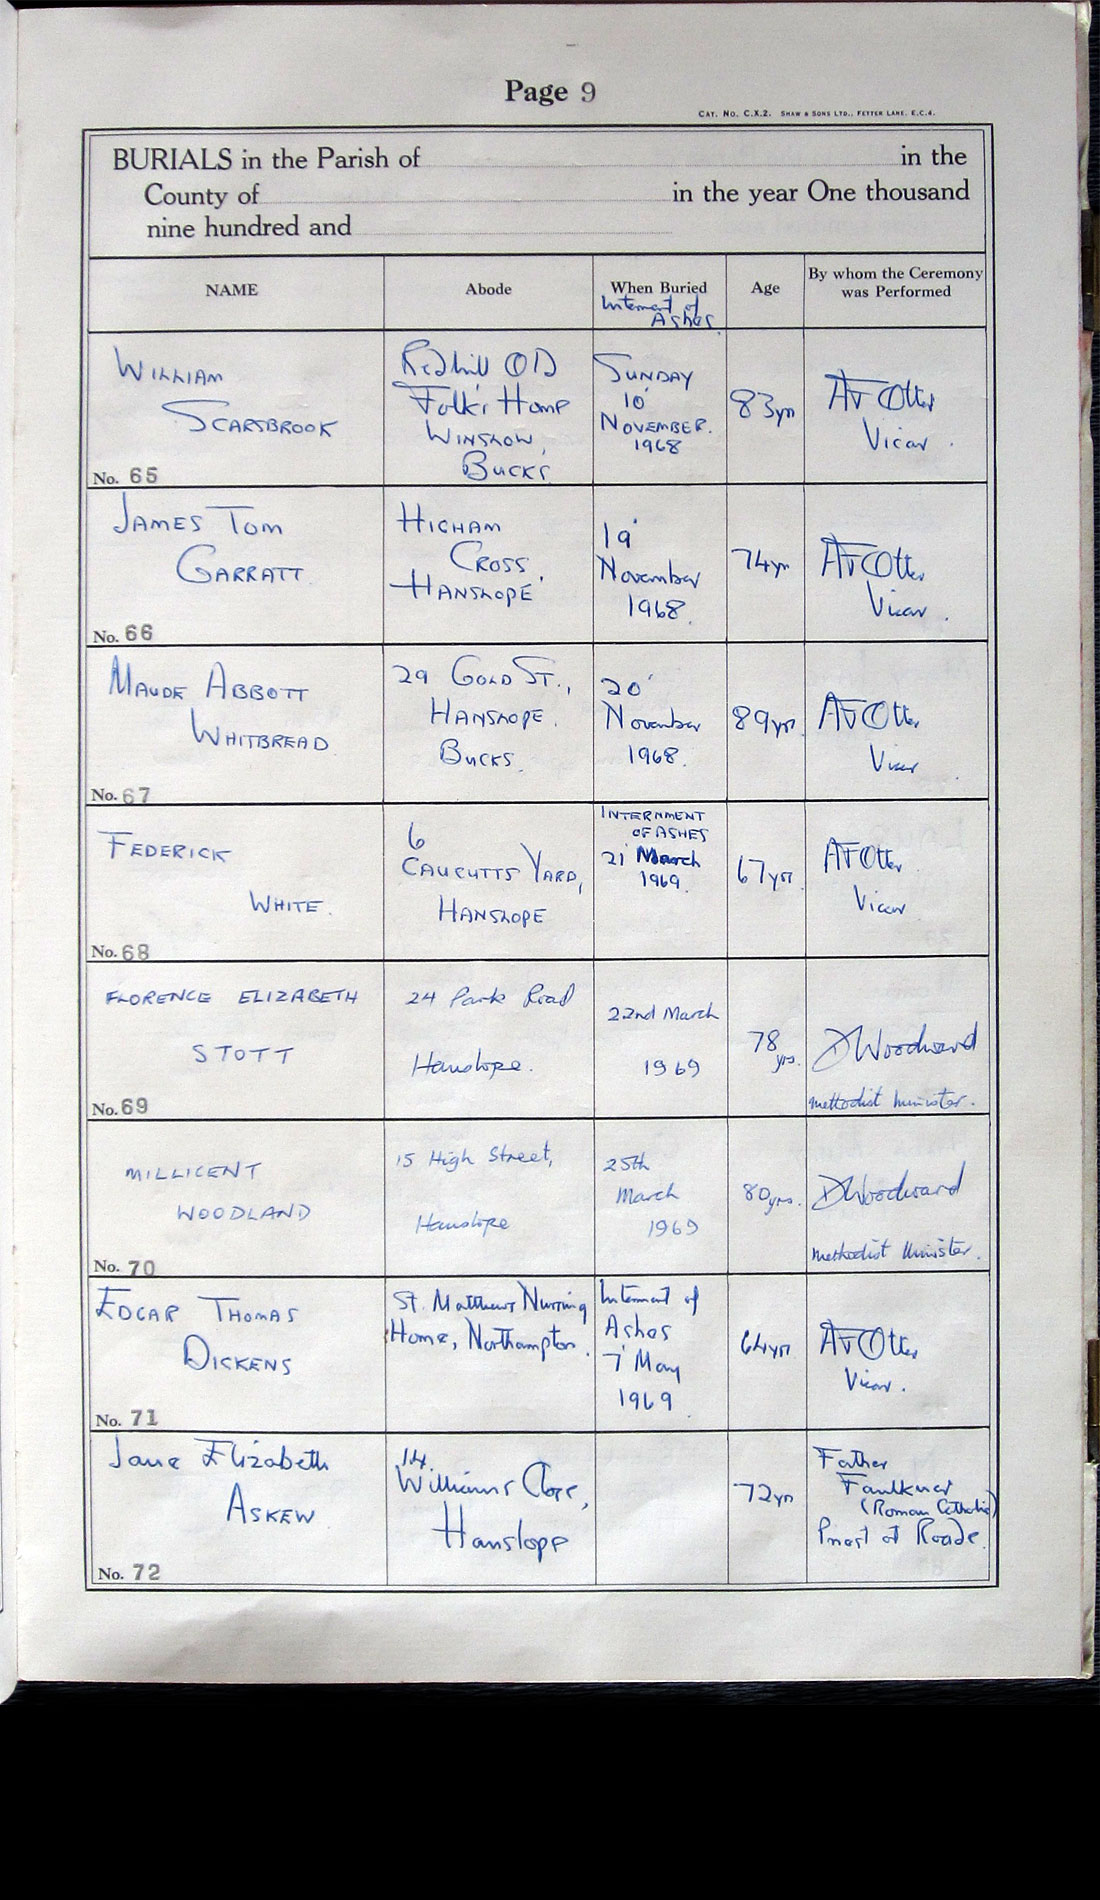 Page 9
CAT. NO. C.X.2. SHAW & SONS LTD., FETTER LANE, E.C.4.
BURIALS in the Parish of in the
County of in the year One thousand
nine hundred and
NAME Abode When Buried Age By whom the Ceremony was Performed
Interment of
Ashes.
WILLIAM
SCARSBROOK
No. 65
Redhill Old
Folk's Home
WINSLOW,
BUCKS
SUNDAY
10
NOVEMBER.
1968
83yrs
AF Otter
Vicar.
JAMES TOM
GARRATT.
No. 66
HIGHAM
CROSS,
HANSLOPE
19
November
1968.
74yrs
AF Otter
Vicar.
MAUDE ABBOTT
WHITBREAD.
No. 67
29 GOLD ST.,
HANSLOPE.
BUCKS.
20
November
1968.
89yrs.
AF Otter
Vicar.
FEDERICK
WHITE.
No. 68
6
CAUCUTTS YARD,
HANSLOPE
INTERNMENT
OF ASHES
21 March
1969.
67yrs.
AF Otter.
Vicar
FLORENCE ELIZABETH
STOTT
No. 69
24 Park Road
Hanslope.
22nd March
1969
78
yrs.
D Woodward
Methodist Minister.
MILLICENT
WOODLAND
No. 70
15 High Street,
Hanslope
25th
March
1969
80yrs.
D Woodward
Methodist Minister.
EDGAR THOMAS
DICKENS
No. 71
St. Matthews Nursing
Home, Northampton.
Interment of
Ashes
7 May
1969.
64yrs
AF Otter
Vicar.
Jane Elizabeth
ASKEW
No. 72
14.
Williams Close,
Hanslope
72yrs
Father
Faulkner
(Roman Catholic)
Priest at Roade.